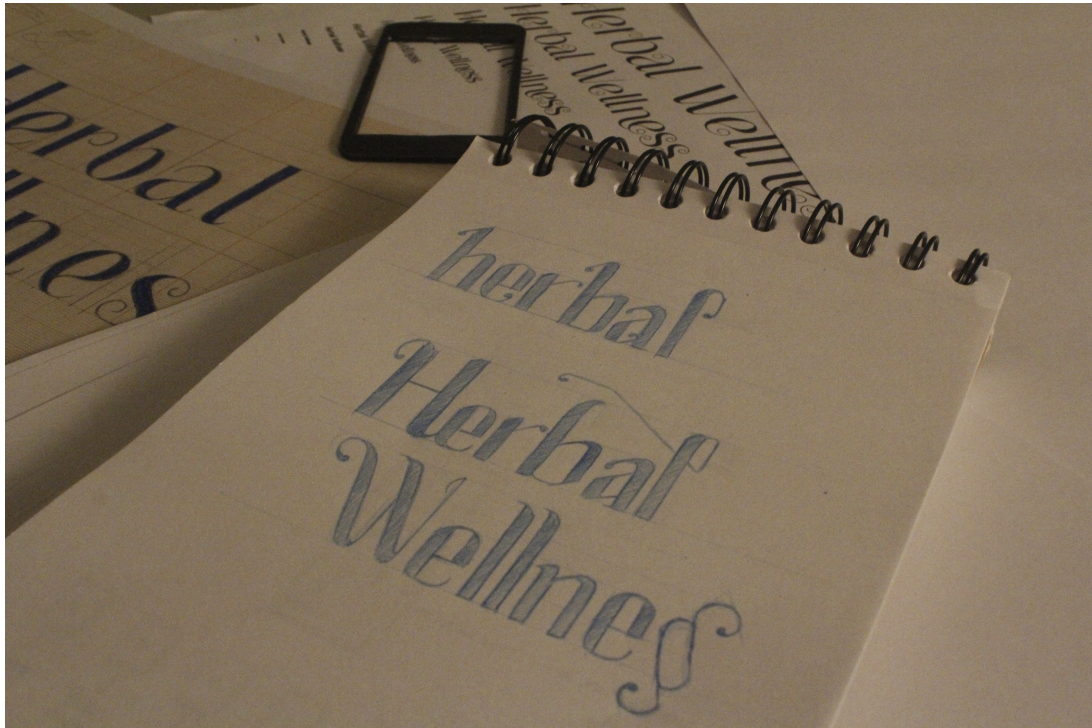 Herbal Wellness
Herbal Wellness
Herbal Wellness
Wellness
Herbal
llness
herbal
Herbal
Wellness